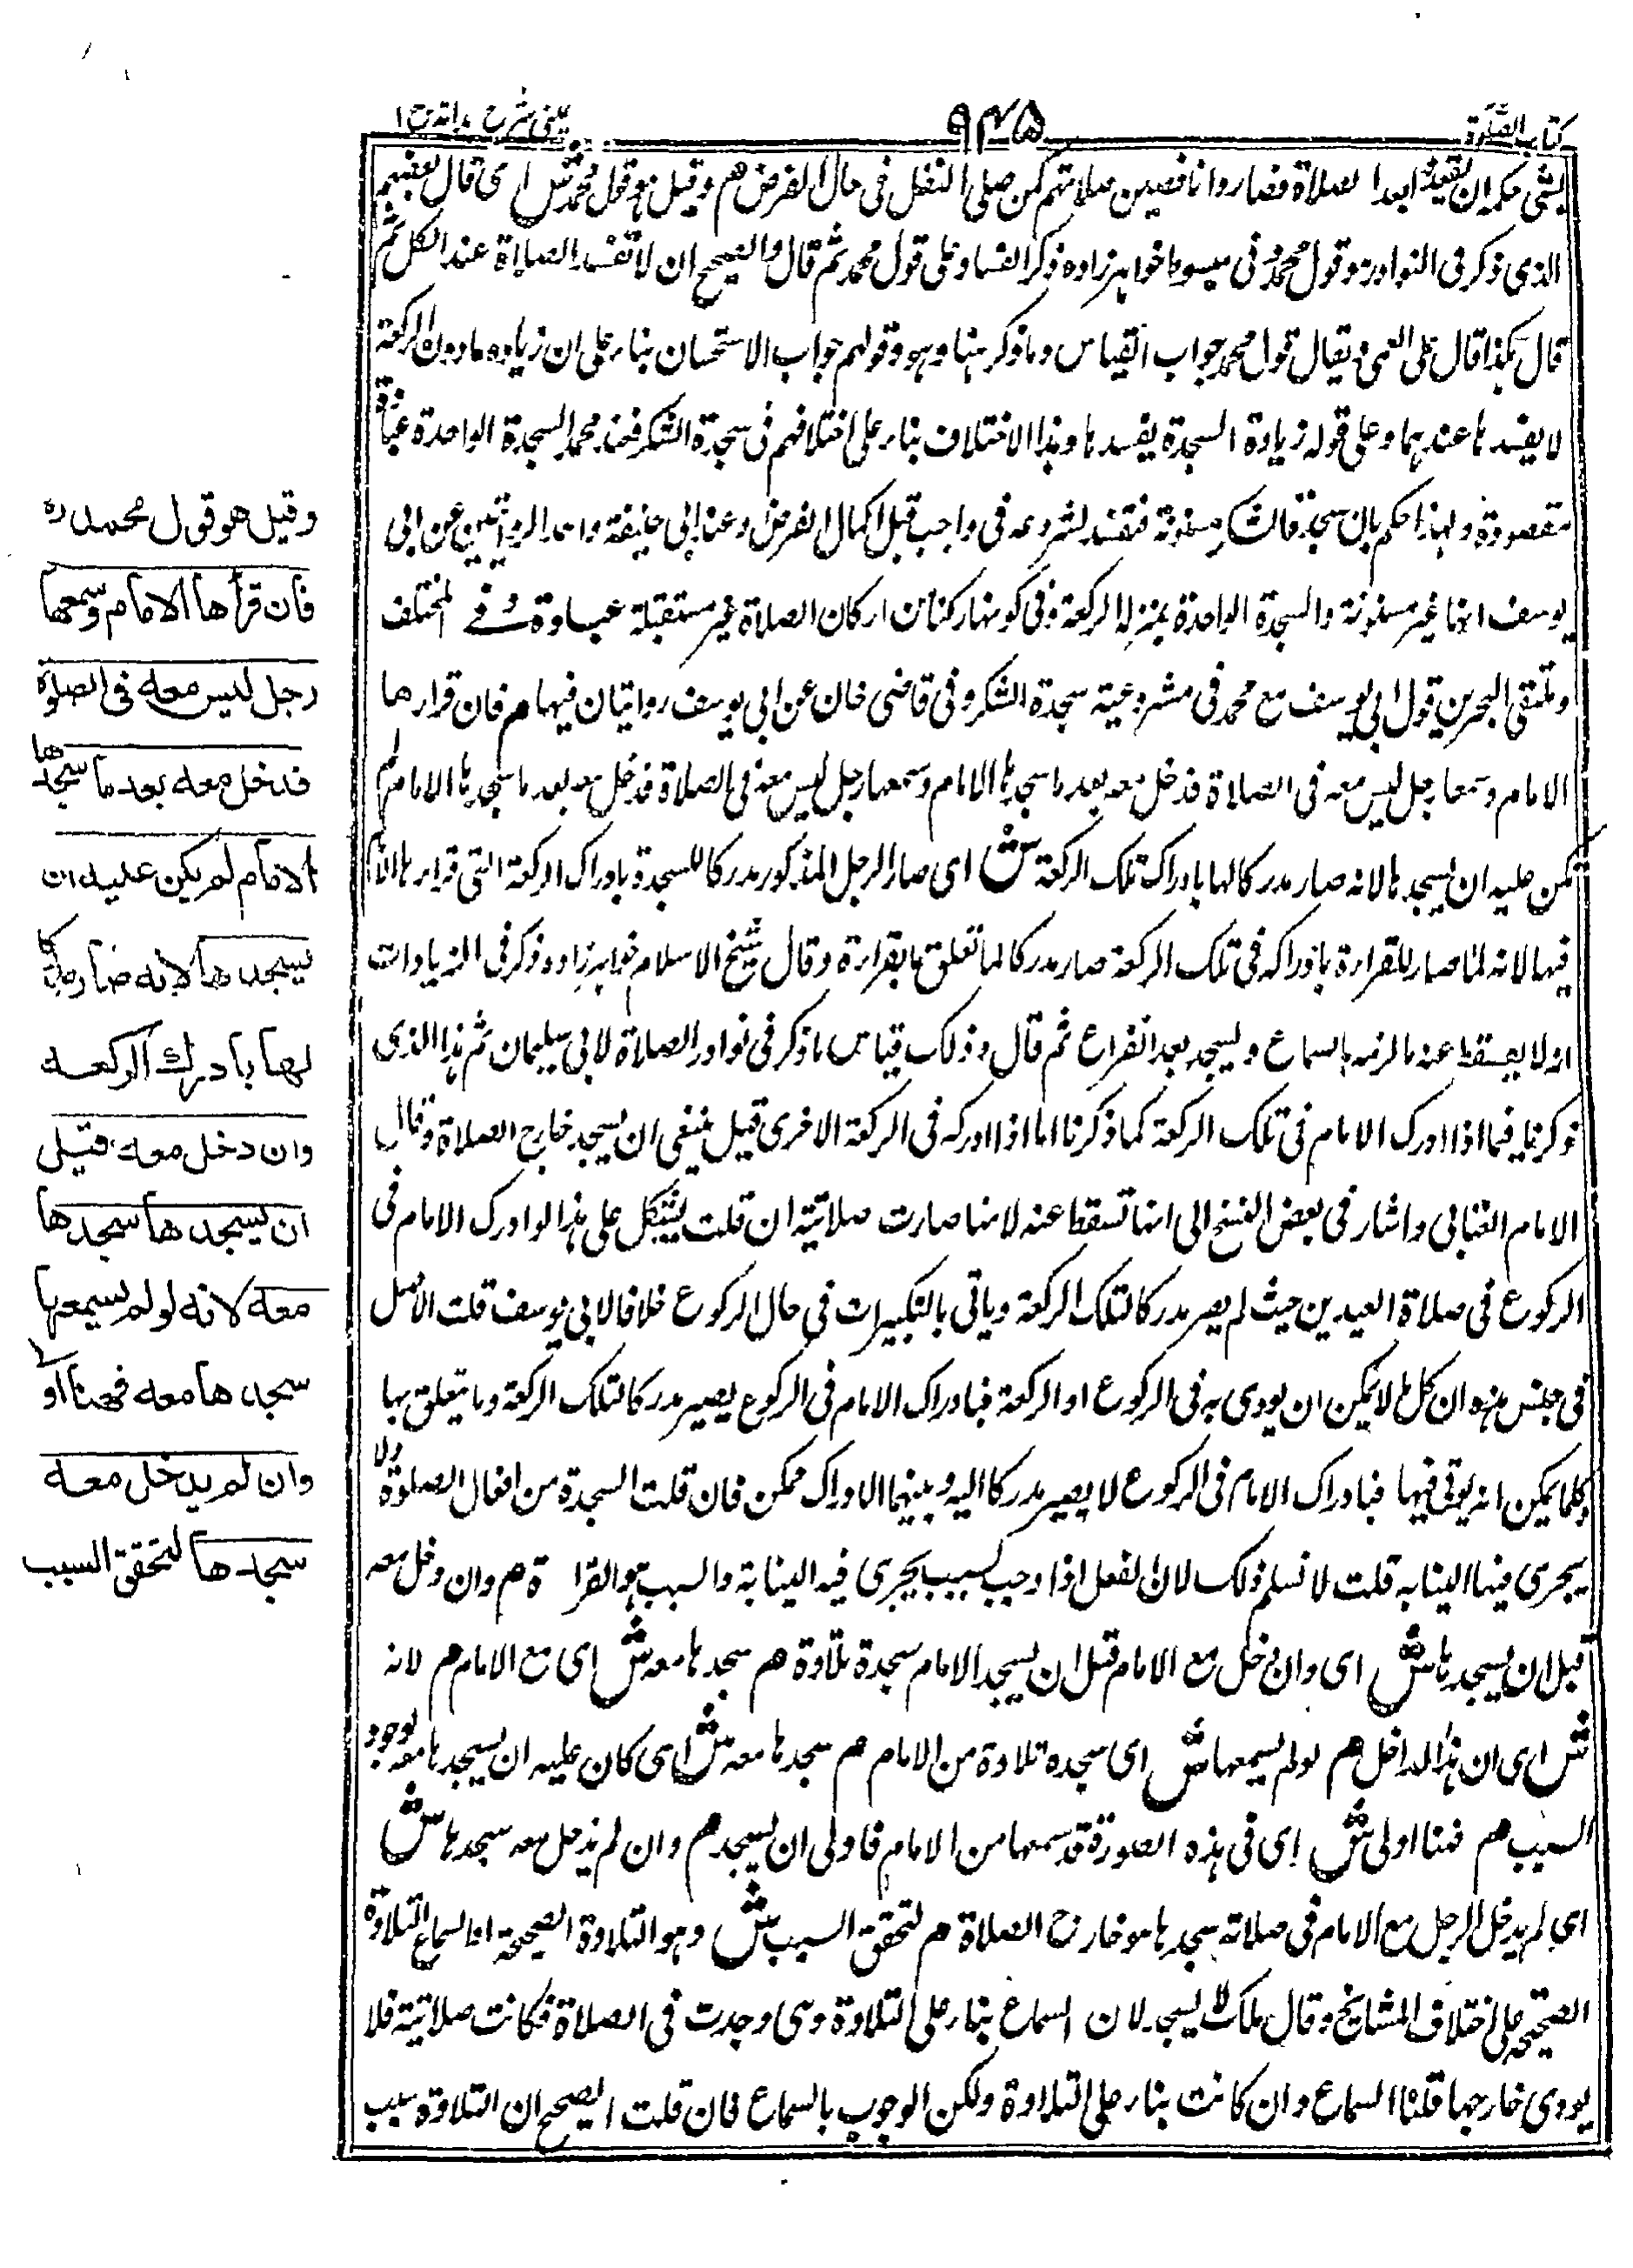 كتاب الصلوة
٩٤٥
عينى شرح هداية ج ١
الذى ذكر فى النوادر هو قول محمد وفى مبسوط خواهر زاده ذكر الفساد على قول محمد ثم قال والصحيح ان لا تفسد الصلاة عند الكل ثم
قال هكذا قال على القمى ويقال قول محمد جواب القياس وما ذكر هنا وهو قولهم جواب الاستحسان بناء على ان زيادة ما دون الركعة
لا يفسدها عندهما وعلى قوله زيادة السجدة يفسدها وهذا الاختلاف بناء على اختلافهم فى سجدة الشكر فعند محمد السجدة الواحدة عبادة
مقصودة ولهذا حكم بان سجدة الشكر مسنونة فتفسد لشروعه فى واجب قبل اكمال الفرض وعند ابى حنيفة واحدى الروايتين عن ابى
يوسف انها غير مسنونة والسجدة الواحدة بمنزلة الركعة وفى كونها ركنا من اركان الصلاة غير مستقبلة عبادة وفى المختلف
وملتقى البحرين قول ابى يوسف مع محمد فى مشروعية سجدة الشكر وفى قاضى خان عن ابى يوسف روايتان فيها م فان قراءها
الامام وسمعها رجل ليس معه فى الصلاة فدخل معه بعد ما سجدها الامام وسمعها رجل ليس معه فى الصلاة فدخل معه بعد ما سجدها الامام لم
يكن عليه ان يسجدها لانه صار مدركا لها بادراك تلك الركعة ش اى صار الرجل المذكور مدركا للسجدة بادراك الركعة التى قراءها الامام
فيها لانه لما صار للقراءة بادراكه فى تلك الركعة صار مدركا لما تعلق بالقراءة وقال شيخ الاسلام خواهر زاده ذكر فى الزيادات
انه لا يسقط عنه ما لزمه بالسماع ويسجد بعد الفراغ ثم قال وذلك قياس ما ذكر فى نوادر الصلاة لابى سليمان ثم هذا الذى
ذكرناه فيما اذا ادرك الامام فى تلك الركعة كما ذكرنا اما اذا ادركه فى الركعة الاخرى قيل ينبغى ان يسجد خارج الصلاة وقال
الامام العتابى واشار فى بعض النسخ الى انها تسقط عنه لانها صارت صلاتية ان قلت يشكل على هذا لو ادرك الامام فى
الركوع فى صلاة العيدين حيث لم يصر مدركا لتلك الركعة وياتى بالتكبيرات فى حال الركوع خلافا لابى يوسف قلت الاصل
فى جنس هذه ان كل ما لا يمكن ان يودى به فى الركوع او الركعة فبادراك الامام فى الركوع يصير مدركا لتلك الركعة وما يتعلق بها
وكلما يمكن انه يوتى فيها فبادراك الامام فى الركوع لا يصير مدركا اليه وبينهما الادراك ممكن فان قلت السجدة من افعال الصلوة ولا
يجرى فيها النيابه قلت لا نسلم ذلك لان الفعل اذا وجب لسبب يجرى فيه النيابة والسبب هو القراءة م وان دخل معه
قبل ان يسجدها ش اى وان دخل مع الامام قبل ان يسجد الامام سجدة تلاوة م سجدها معه ش اى مع الامام م لانه
ش اى ان هذا الداخل م لو لم يسمعها ش اى سجده تلاوة من الامام م سجدها معه ش اى كان عليه ان يسجدها معه لوجود
السبب م فهنا اولى ش اى فى هذه الصورة قد سمعها من الامام فاولى ان يسجد م وان لم يدخل معه سجدها ش
اى لم يدخل الرجل مع الامام فى صلاته سجدها هو خارج الصلاة م لتحقق السبب ش وهو التلاوة الصحيحة او السماع التلاوة
الصحيحة على اختلاف المشايخ وقال مالك لا يسجد لان السماع بناء على التلاوة وهى وجدت فى الصلاة فكانت صلاتية فلا
يودى خارجها قلنا السماع وان كانت بناء على التلاوة ولكن الوجوب بالسماع فان قلت الصحيح ان التلاوة سبب
وقيل هو قول محمد ره
فان قرأها الامام وسمعها
رجل ليس معه فى الصلوة
فدخل معه بعد ما سجدها
الامام لم يكن عليه ان
يسجدها لانه صار مدركا
لها بادراك الركعه
وان دخل معه قبل
ان يسجدها سجدها
معه لانه لو لم يسمعها
سجدها معه فههنا اولى
وان لم يدخل معه
سجدها لتحقق السبب